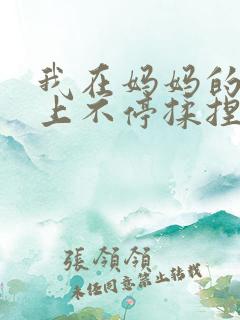 我在妈妈的
上不停揉捏
張領領
未经同意禁止转载